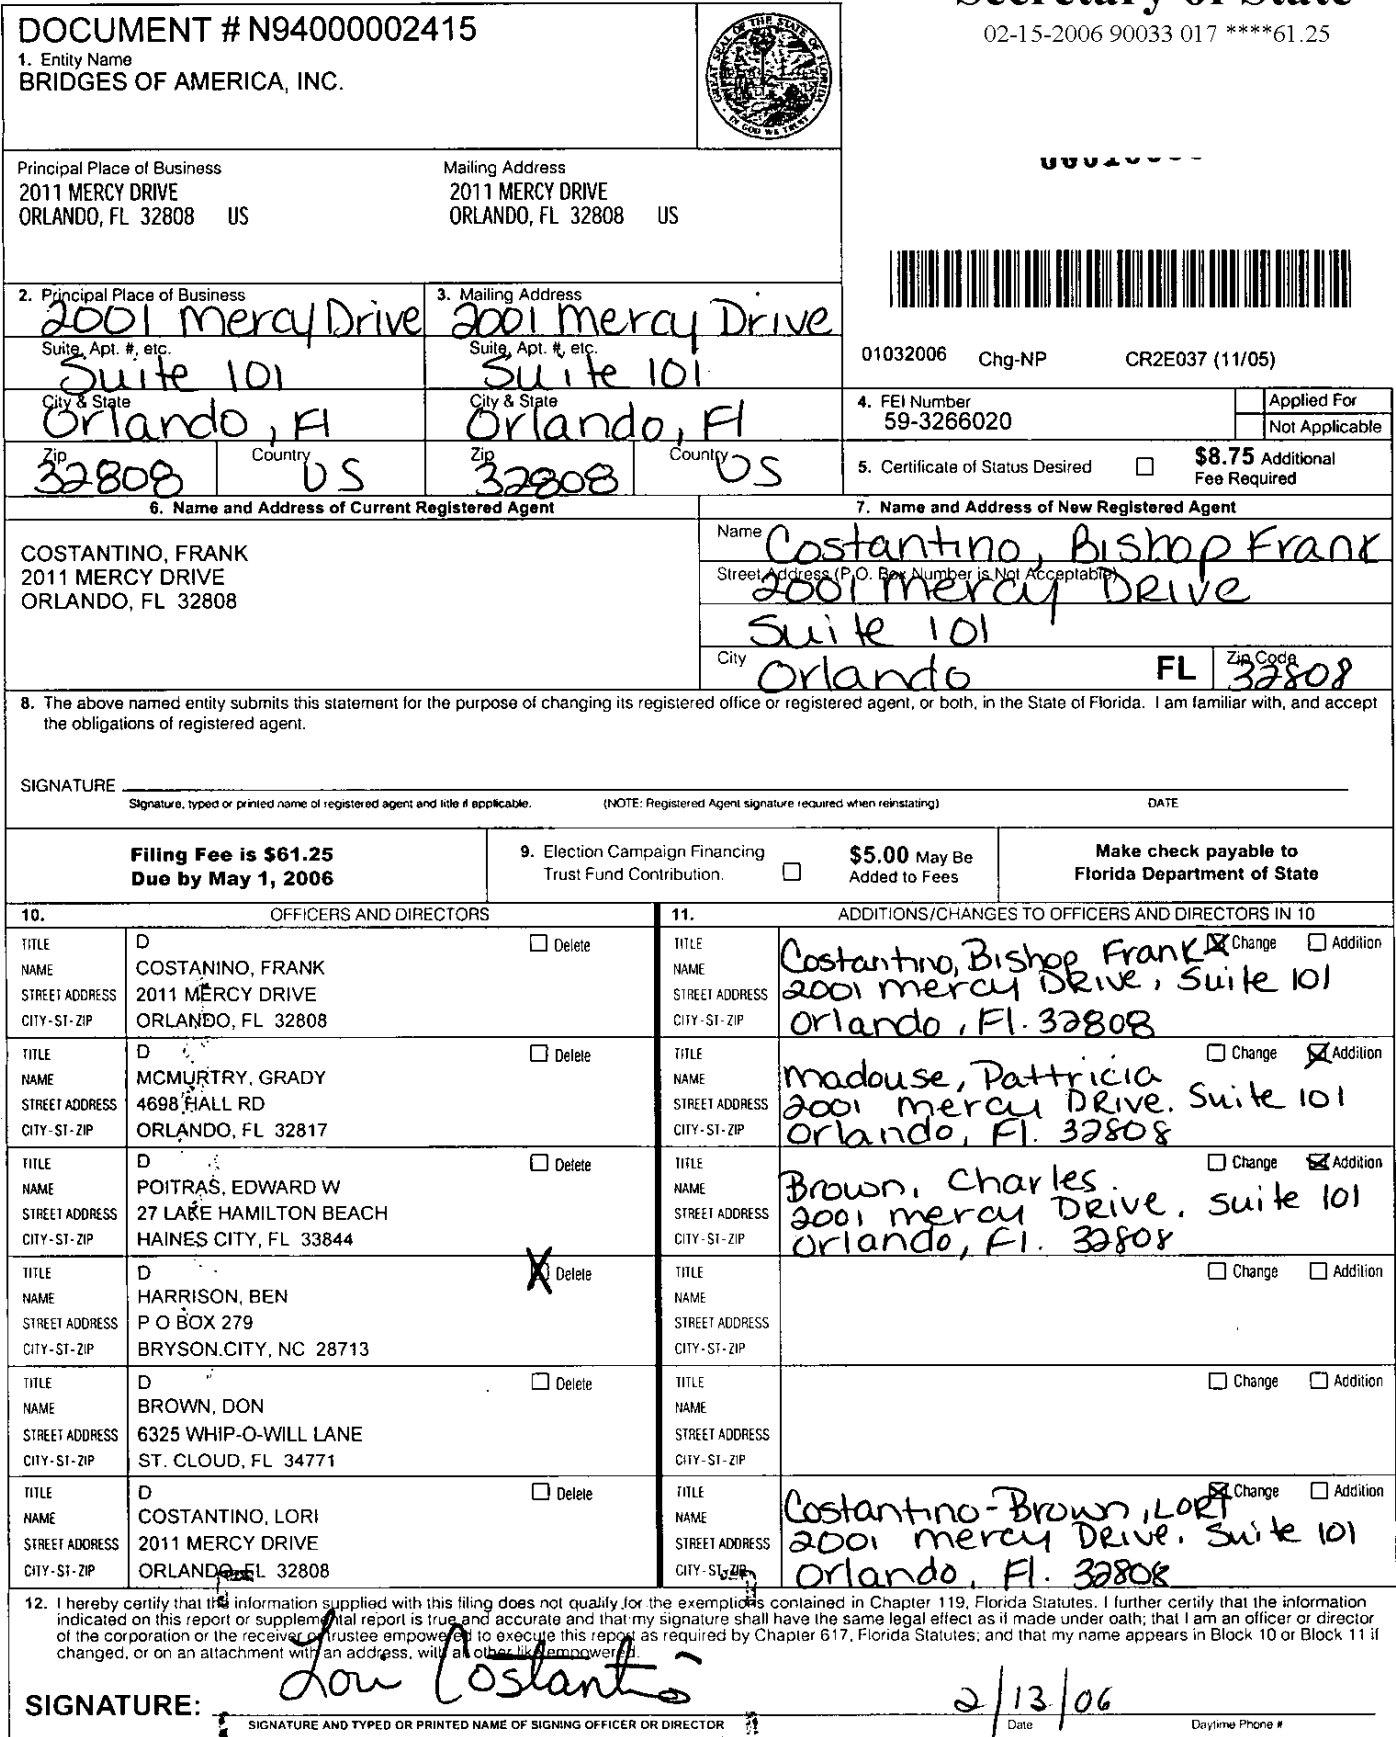 Secretary of State
02-15-2006 90033 017 ****61.25
DOCUMENT # N94000002415
1. Entity Name
BRIDGES OF AMERICA, INC.
GREAT SEAL OF THE STATE OF FLORIDA
IN GOD WE TRUST
Principal Place of Business
2011 MERCY DRIVE
ORLANDO, FL 32808 US
Mailing Address
2011 MERCY DRIVE
ORLANDO, FL 32808 US
2. Principal Place of Business
2001 Mercy Drive
Suite, Apt. #, etc.
Suite 101
City & State
Orlando, Fl
Zip
32808
Country
US
3. Mailing Address
2001 Mercy Drive
Suite, Apt. #, etc.
Suite 101
City & State
Orlando, Fl
Zip
32808
Country
US
01032006 Chg-NP CR2E037 (11/05)
4. FEI Number
59-3266020
Applied For
Not Applicable
5. Certificate of Status Desired
$8.75 Additional
Fee Required
6. Name and Address of Current Registered Agent
COSTANTINO, FRANK
2011 MERCY DRIVE
ORLANDO, FL 32808
7. Name and Address of New Registered Agent
Name Costantino, Bishop Frank
Street Address (P.O. Box Number is Not Acceptable)
2001 Mercy DRive
Suite 101
City Orlando FL Zip Code 32808
8. The above named entity submits this statement for the purpose of changing its registered office or registered agent, or both, in the State of Florida. I am familiar with, and accept
the obligations of registered agent.
SIGNATURE
Signature, typed or printed name of registered agent and title if applicable. (NOTE: Registered Agent signature required when reinstating) DATE
Filing Fee is $61.25
Due by May 1, 2006
9. Election Campaign Financing
Trust Fund Contribution.
$5.00 May Be
Added to Fees
Make check payable to
Florida Department of State
10. OFFICERS AND DIRECTORS
TITLE D Delete
NAME COSTANINO, FRANK
STREET ADDRESS 2011 MERCY DRIVE
CITY-ST-ZIP ORLANDO, FL 32808
TITLE D Delete
NAME MCMURTRY, GRADY
STREET ADDRESS 4698 HALL RD
CITY-ST-ZIP ORLANDO, FL 32817
TITLE D Delete
NAME POITRAS, EDWARD W
STREET ADDRESS 27 LAKE HAMILTON BEACH
CITY-ST-ZIP HAINES CITY, FL 33844
TITLE D X Delete
NAME HARRISON, BEN
STREET ADDRESS P O BOX 279
CITY-ST-ZIP BRYSON.CITY, NC 28713
TITLE D Delete
NAME BROWN, DON
STREET ADDRESS 6325 WHIP-O-WILL LANE
CITY-ST-ZIP ST. CLOUD, FL 34771
TITLE D Delete
NAME COSTANTINO, LORI
STREET ADDRESS 2011 MERCY DRIVE
CITY-ST-ZIP ORLANDO, FL 32808
11. ADDITIONS/CHANGES TO OFFICERS AND DIRECTORS IN 10
TITLE X Change Addition
NAME Costantino, Bishop Frank
STREET ADDRESS 2001 Mercy DRive, Suite 101
CITY-ST-ZIP Orlando, Fl. 32808
TITLE Change X Addition
NAME Madouse, Pattricia
STREET ADDRESS 2001 Mercy DRive. Suite 101
CITY-ST-ZIP Orlando, Fl. 32808
TITLE Change X Addition
NAME Brown, Charles.
STREET ADDRESS 2001 Mercy DRive. Suite 101
CITY-ST-ZIP Orlando, Fl. 32808
TITLE Change Addition
NAME
STREET ADDRESS
CITY-ST-ZIP
TITLE Change Addition
NAME
STREET ADDRESS
CITY-ST-ZIP
TITLE X Change Addition
NAME Costantino-Brown, LORI
STREET ADDRESS 2001 Mercy DRive. Suite 101
CITY-ST-ZIP Orlando, Fl. 32808
12. I hereby certify that the information supplied with this filing does not qualify for the exemptions contained in Chapter 119, Florida Statutes. I further certify that the information
indicated on this report or supplemental report is true and accurate and that my signature shall have the same legal effect as if made under oath; that I am an officer or director
of the corporation or the receiver or trustee empowered to execute this report as required by Chapter 617, Florida Statutes; and that my name appears in Block 10 or Block 11 if
changed, or on an attachment with an address, with all other like empowered.
SIGNATURE: Lori Costantino 2/13/06
SIGNATURE AND TYPED OR PRINTED NAME OF SIGNING OFFICER OR DIRECTOR Date Daytime Phone #